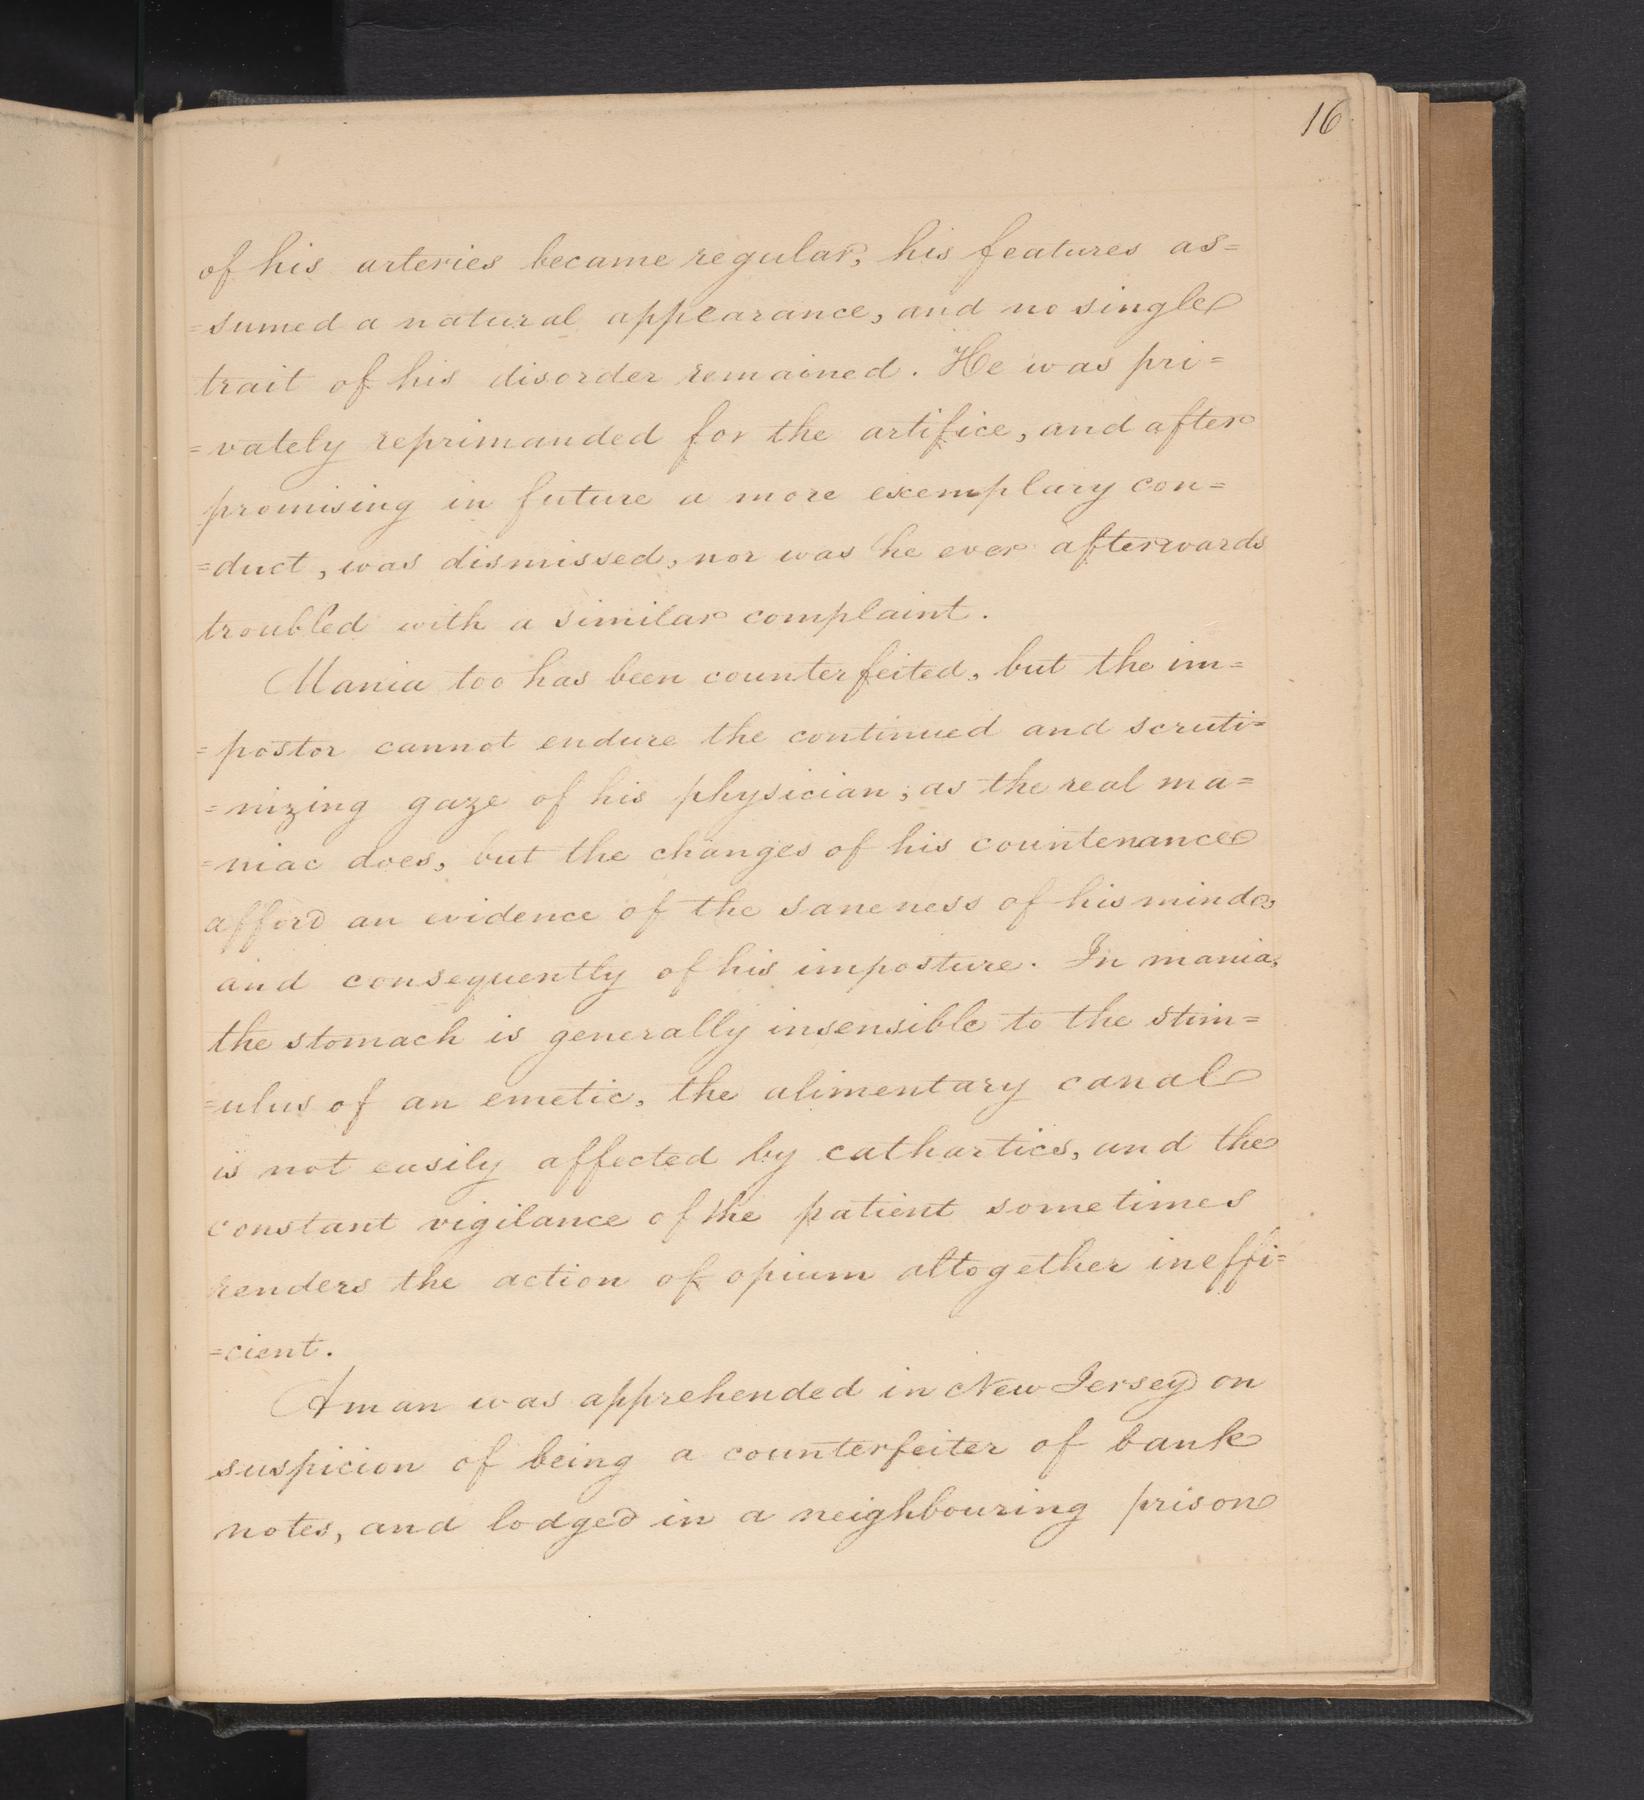 16
of his arteries became regular, his features as=
=sumed a natural appearance, and no single
trait of his disorder remained. He was pri=
=vately reprimanded for the artifice, and after
promising in future a more exemplary con=
=duct, was dismissed, nor was he ever afterwards
troubled with a similar complaint.
Mania too has been counterfeited, but the im=
=postor cannot endure the continued and scruti=
=nizing gaze of his physician, as the real ma=
=niac does, but the changes of his countenance
afford an evidence of the saneness of his mind,
and consequently of his imposture. In mania,
the stomach is generally insensible to the stim=
=ulus of an emetic, the alimentary canal
is not easily affected by cathartics, and the
constant vigilance of the patient sometimes
renders the action of opium altogether ineffi=
=cient.
A man was apprehended in New Jersey on
suspicion of being a counterfeiter of bank
notes, and lodged in a neighbouring prison